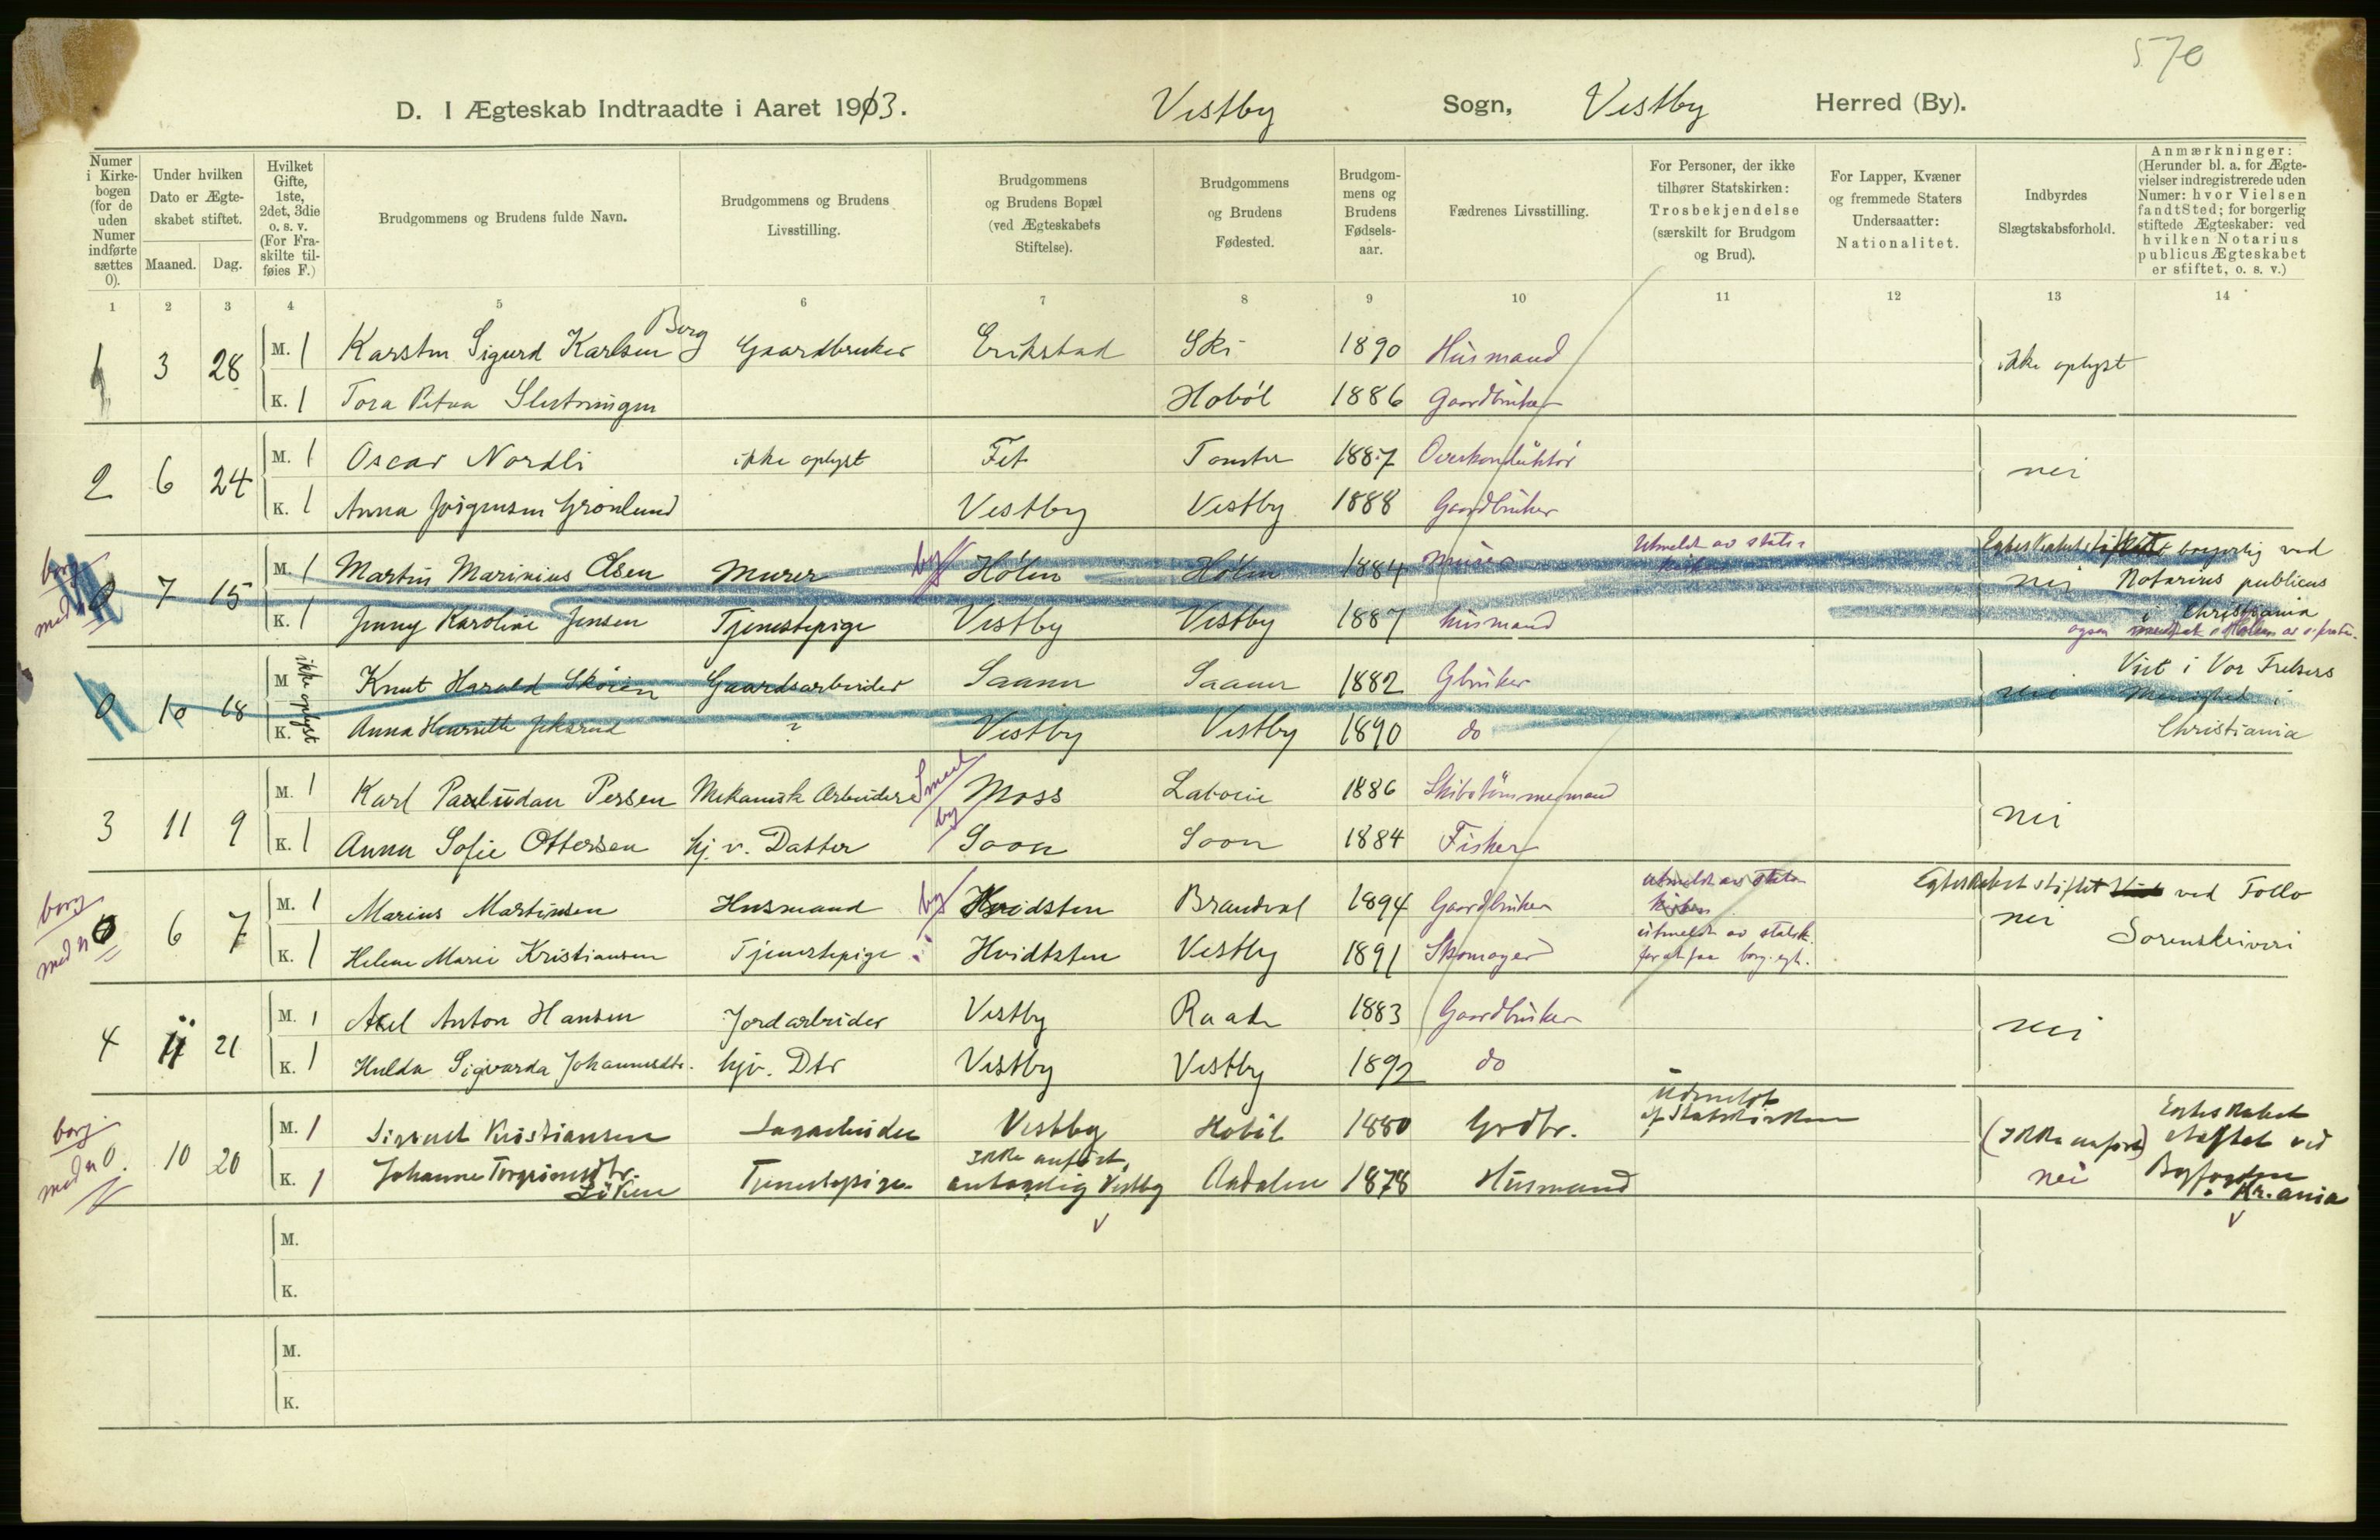 570
D. I Ægteskab Indtraadte i Aaret 1913. Vestby Sogn, Vestby Herred (By).
Numer i Kirke-bogen (for de uden Numer indførte sættes 0).
Under hvilken Dato er Ægte-skabet stiftet.
Maaned. Dag.
Hvilket Gifte, 1ste, 2det, 3die o. s. v. (For Fra-skilte til-føies F.)
Brudgommens og Brudens fulde Navn.
Brudgommens og Brudens Livsstilling.
Brudgommens og Brudens Bopæl (ved Ægteskabets Stiftelse).
Brudgommens og Brudens Fødested.
Brudgom-mens og Brudens Fødsels-aar.
Fædrenes Livsstilling.
For Personer, der ikke tilhører Statskirken: Trosbekjendelse (særskilt for Brudgom og Brud).
For Lapper, Kvæner og fremmede Staters Undersaatter: Nationalitet.
Indbyrdes Slægtskabsforhold.
Anmærkninger: (Herunder bl. a. for Ægte-vielser indregistrerede uden Numer: hvor Vielsen fandt Sted; for borgerlig stiftede Ægteskaber: ved hvilken Notarius publicus Ægteskabet er stiftet, o. s. v.)
1 2 3 4 5 6 7 8 9 10 11 12 13 14
1 3 28 M. 1 Karsten Sigurd Karlsen Berg Gaardbruker Erikstad Ski 1890 Husmand ikke oplyst
K. 1 Tora Petra Hobøl 1886 Gaardbruker
2 6 24 M. 1 Oscar Nordli ikke oplyst Fet Tomter 1887 Overkonduktør nei
K. 1 Anna Jørgensen Grønlund Vestby Vestby 1888 Gaardbruker
borg med 0 7 15 M. 1 Martin Marinius Olsen Murer by Hølen Hølen 1884 Murer Utmeldt av stats- nei Egteskabet stiftet borgerlig ved
Notarius publicus
K. 1 Jenny Karoline Jensen Tjenestepige Vestby Vestby 1887 husmand i Christiania
0 10 18 M ikke oplyst Knut Harald Skoien Gaardsarbeider Saaner Saaner 1882 Gbruker nei Viet i Vor Frelsers
Menighed i
K. Anna Henriette ? Vestby Vestby 1890 do Christiania
3 11 9 M. 1 Karl Paulüdan Persen Mekanisk Arbeider Smed Moss 1886 Skibstømmermand nei
K. 1 Anna Sofie Ottersen hj. v. Datter by Soon Soon 1884 Fisker
borg med 0 6 7 M. 1 Marius Martinsen Husmand by Hvidsten Brandval 1894 Gaardbruker utmeldt av stats- kirken nei Egteskabet stiftet ved Follo
Sorenskriveri
K. 1 Helene Marie Kristiansen Tjenestepige Hvidtsten Vestby 1891 Skomager utmeldt av statsk. for at faa borg. egt.
4 11 21 M. 1 Axel Anton Hansen Jordarbeider Vestby Raade 1883 Gaardbruker nei
K. 1 Hulda Sigvarda Johannesdtr. hjv. Dtr Vestby Vestby 1892 do
borg med 0. 10 20 M. 1 Sigurd Kristiansen Sagarbeider Vestby Hobøl 1880 Grdbr. Udmeldt af Statskirken (ikke anført) Egteskabet stiftet ved
K. 1 Johanne Torgrimsdtr. Løken Tjenestepige Ikke anført, antagelig Vestby Aadalen 1878 Husmand nei Byfogden Kr.ania
M.
K.
M.
K.